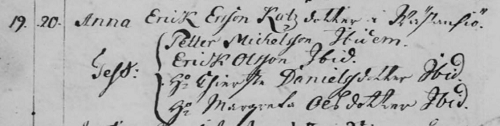 19. 20. Anna Erick Ersson Katz dotter i
Petter Michelsson Ibidem.
Test: Erick Olsson Ibid.
Hu Chierstin Danielsdotter Ibid.
Hu Margreta Olsdotter Ibid.